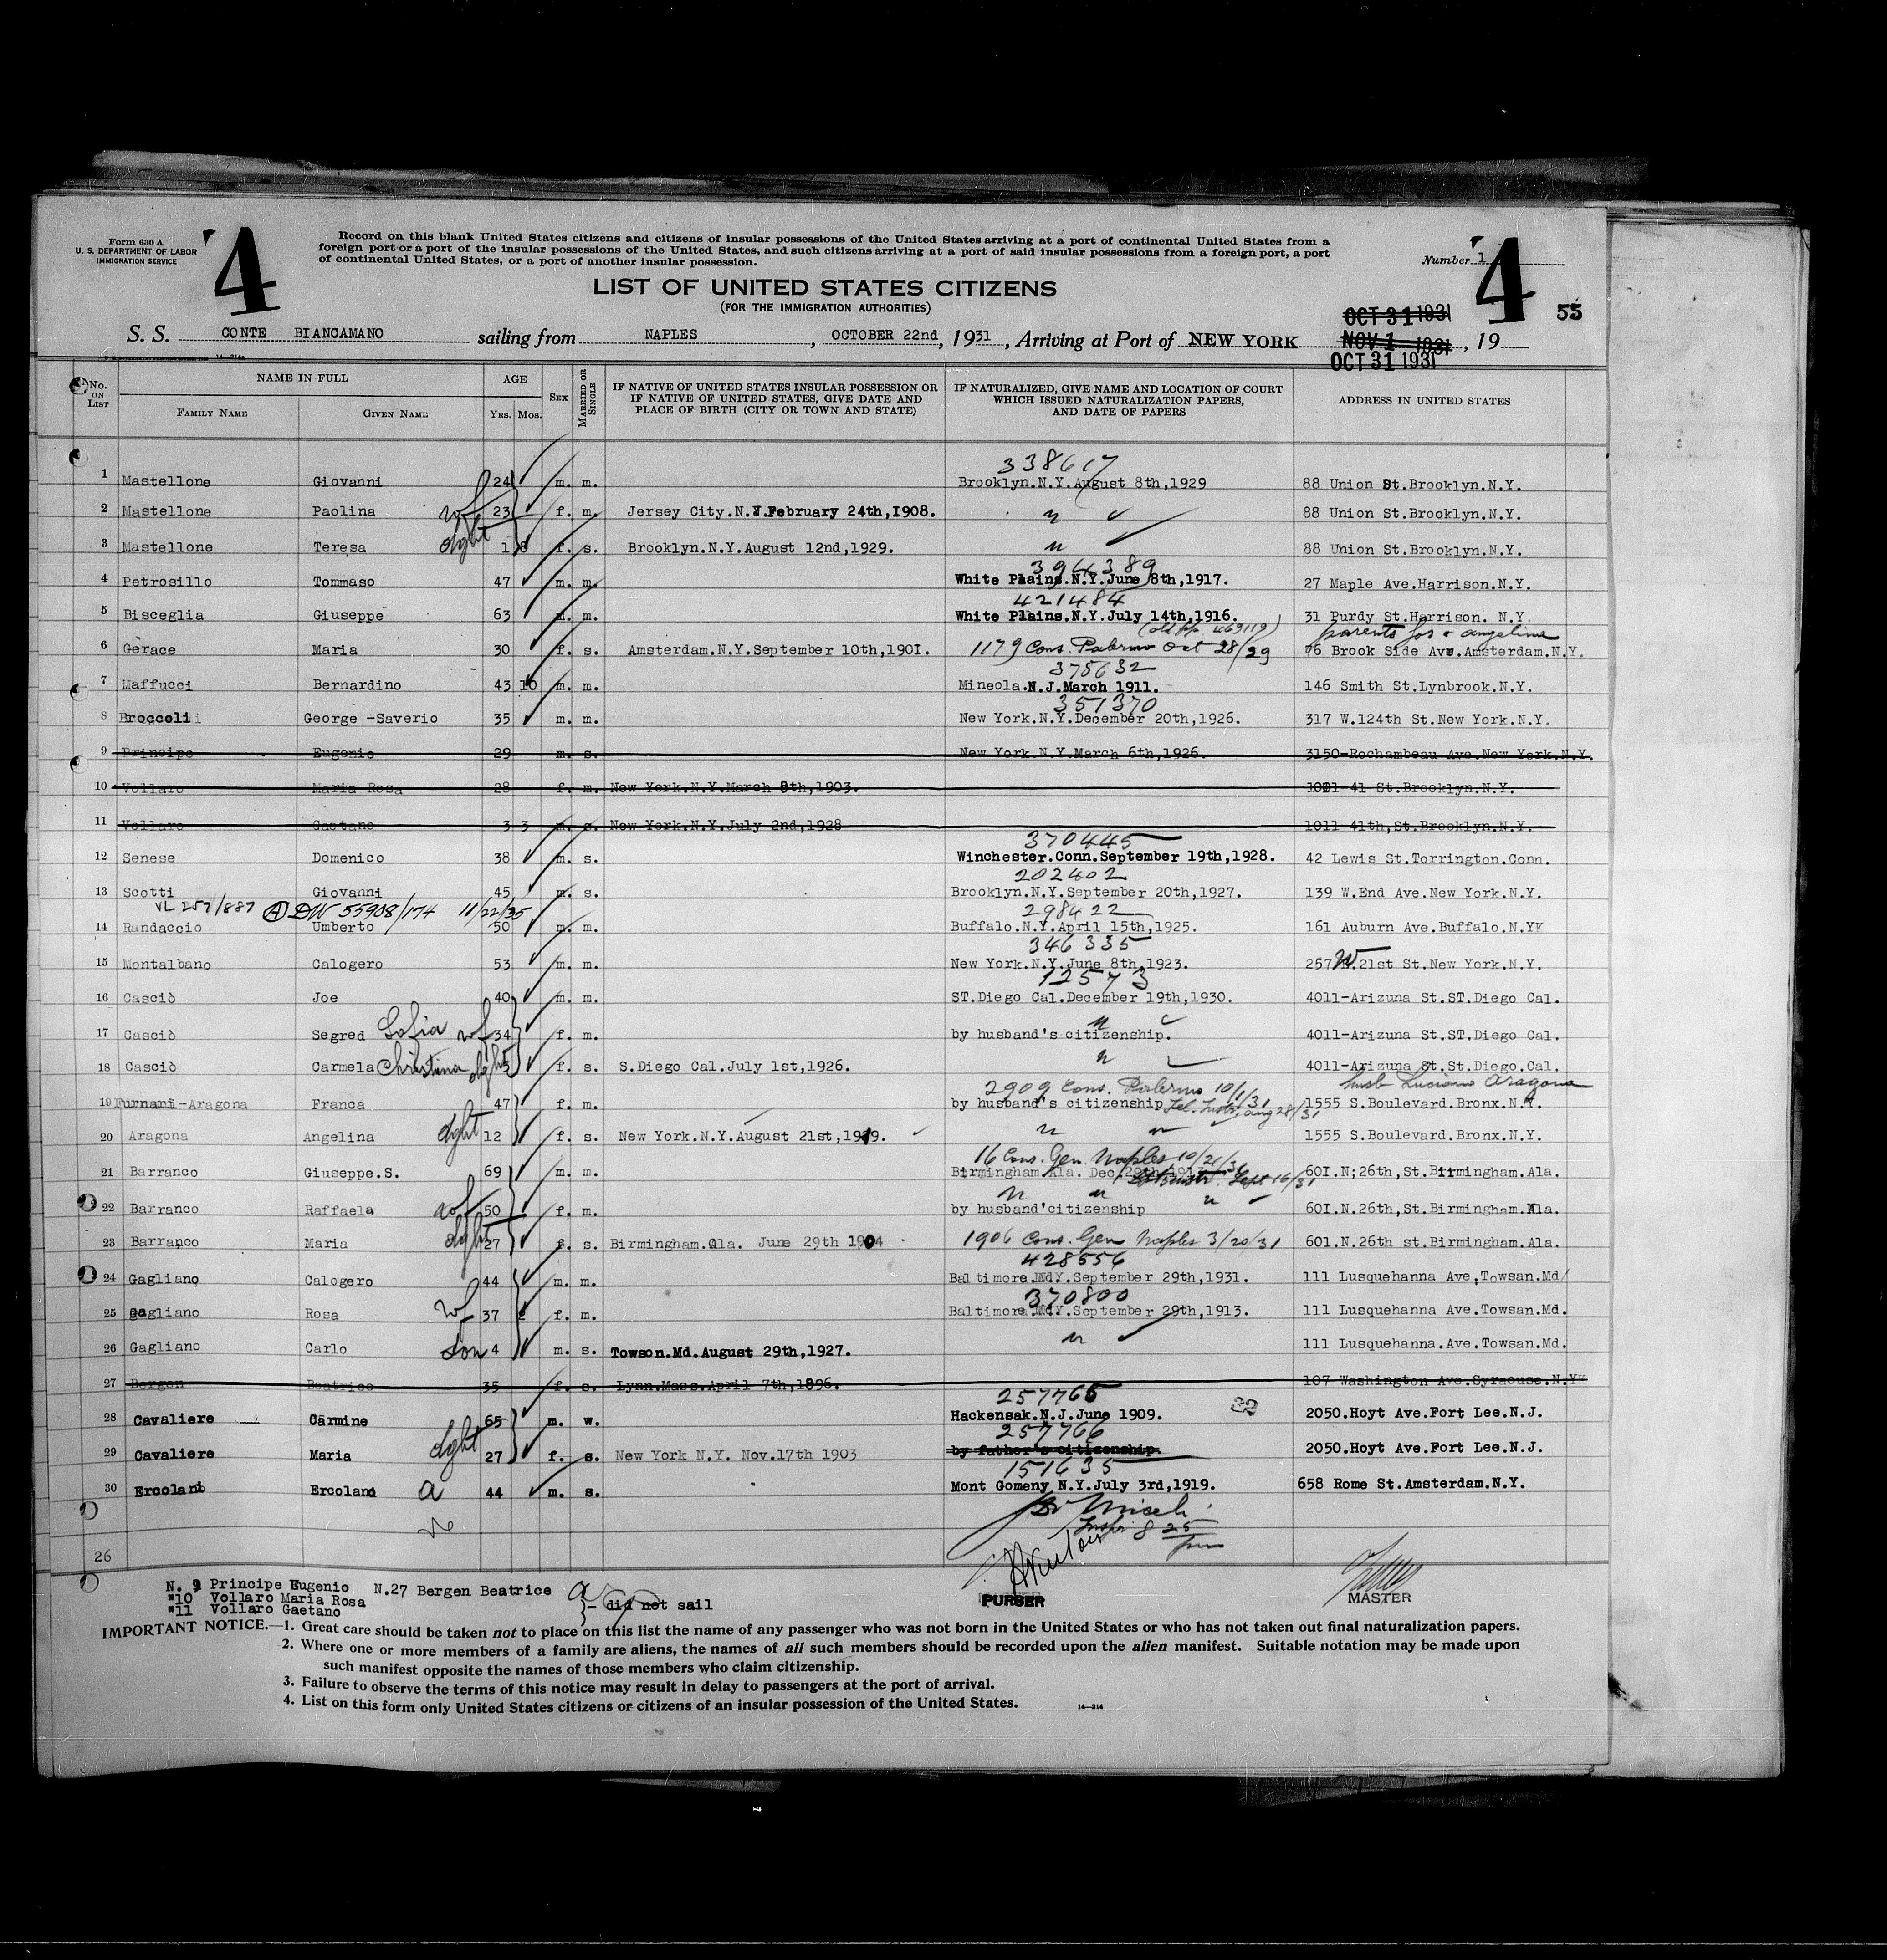 Form 630 A
U. S. DEPARTMENT OF LABOR
IMMIGRATION SERVICE
4
Record on this blank United States citizens and citizens of insular possessions of the United States arriving at a port of continental United States from a
foreign port or a port of the insular possessions of the United States, and such citizens arriving at a port of said insular possessions from a foreign port, a port
of continental United States, or a port of another insular possession.
Number 1
4
55
LIST OF UNITED STATES CITIZENS
(FOR THE IMMIGRATION AUTHORITIES)
OCT 31 1931
S. S. CONTE BIANCAMANO sailing from NAPLES, OCTOBER 22nd, 1931, Arriving at Port of NEW YORK NOV 1 1931, 19
OCT 31 1931
No. ON LIST NAME IN FULL AGE SEX MARRIED OR SINGLE IF NATIVE OF UNITED STATES INSULAR POSSESSION OR IF NATIVE OF UNITED STATES, GIVE DATE AND PLACE OF BIRTH (CITY OR TOWN AND STATE) IF NATURALIZED, GIVE NAME AND LOCATION OF COURT WHICH ISSUED NATURALIZATION PAPERS, AND DATE OF PAPERS ADDRESS IN UNITED STATES
FAMILY NAME GIVEN NAME YRS. MOS.
338617
1 Mastellone Giovanni 24 m. m. Brooklyn.N.Y.August 8th,1929 88 Union St.Brooklyn.N.Y.
2 Mastellone Paolina wf 23 f. m. Jersey City.N.J.February 24th,1908. " 88 Union St.Brooklyn.N.Y.
3 Mastellone Teresa dght 1 8 f. s. Brooklyn.N.Y.August 12nd,1929. " 88 Union St.Brooklyn.N.Y.
394389
4 Petrosillo Tommaso 47 m. m. White Plains.N.Y.June 8th,1917. 27 Maple Ave.Harrison.N.Y.
421484
5 Bisceglia Giuseppe 63 m. m. White Plains.N.Y.July 14th,1916. 31 Purdy St.Harrison. N.Y
(old pp. 469119) parents Jos & Angeline
6 Gerace Maria 30 f. s. Amsterdam.N.Y.September 10th,1901. 1179 Cons. Palermo Oct 28/29 76 Brook Side Ave.Amsterdam.N.Y.
375632
7 Maffucci Bernardino 43 10 m. m. Mineola.N.J.March 1911. 146 Smith St.Lynbrook.N.Y.
351370
8 Broccoli George -Saverio 35 m. m. New York.N.Y.December 20th,1926. 317 W.124th St.New York.N.Y.
9 Principe Eugenio 29 m. s. New York.N.Y.March 6th,1926. 3150-Rochambeau Ave.New York.N.Y.
10 Vollaro Maria Rosa 28 f. m. New York.N.Y.March 8th,1903. 1011 41 St.Brooklyn.N.Y.
11 Vollaro Gaetano 3 3 m. s. New York.N.Y.July 2nd,1928 1011-41th,St.Brooklyn.N.Y.
370445
12 Senese Domenico 38 m. s. Winchester.Conn.September 19th,1928. 42 Lewis St.Torrington.Conn.
202402
13 Scotti Giovanni 45 m. s. Brooklyn.N.Y.September 20th,1927. 139 W.End Ave.New York.N.Y.
VL 257/887 (A) DW 55908/174 11/22/35 298422
14 Randaccio Umberto 50 m. m. Buffalo.N.Y.April 15th,1925. 161 Auburn Ave.Buffalo.N.Y
346335
15 Montalbano Calogero 53 m. m. New York.N.Y.June 8th,1923. 257 W.21st St.New York.N.Y.
12573
16 Casciò Joe 40 m. m. ST.Diego Cal.December 19th,1930. 4011-Arizuna St.ST.Diego Cal.
17 Casciò Segred Sofia wf 34 f. m. by husband's citizenship. " 4011-Arizuna St.ST.Diego Cal.
18 Casciò Carmela Christina dght 5 f. s. S.Diego Cal.July 1st,1926. " 4011-Arizuna St.St.Diego.Cal.
2909 Cons. Palermo 10/1/31 husb Luciano Aragona
19 Furnari-Aragona Franca 47 f. m. by husband's citizenship Tel. Instr. Aug 28/31 1555 S.Boulevard.Bronx.N.Y.
20 Aragona Angelina dght 12 f. s. New York.N.Y.August 21st,1919. " " 1555 S.Boulevard.Bronx.N.Y.
16 Cons. Gen. Naples 10/21/31
21 Barranco Giuseppe.S. 69 m. m. Birmingham Ala. Dec. Sept 16/31 601.N;26th,St.Birmingham.Ala.
22 Barranco Raffaela wf 50 f. m. by husband'citizenship " " " 601.N.26th,St.Birmingham.Ala.
23 Barranco Maria dght 27 f. s. Birmingham.Ala. June 29th 1904 1906 Cons. Gen Naples 3/20/31 601.N.26th st.Birmingham.Ala.
428556
24 Gagliano Calogero 44 m. m. Baltimore.Md.September 29th,1931. 111 Lusquehanna Ave,Towsan.Md/
370800
25 Gagliano Rosa wf 37 f. m. Baltimore.Md.September 29th,1913. 111 Lusquehanna Ave.Towsan.Md.
26 Gagliano Carlo son 4 m. s. Towson.Md.August 29th,1927. " 111 Lusquehanna.Ave.Towsan.Md.
27 Bergen Beatrice 35 f. s. Lynn.Mass.April 7th,1896. 107 Washington Ave.Syracuse.N.Y
257765
28 Cavaliere Carmine 65 m. w. Hackensak.N.J.June 1909. 32 2050.Hoyt Ave.Fort Lee.N.J.
257766
29 Cavaliere Maria dght 27 f. s. New York N.Y. Nov.17th 1903 by father's citizenship. 2050.Hoyt Ave.Fort Lee.N.J.
151635
30 Ercolani Ercolano a 44 m. s. Mont Gomeny N.Y.July 3rd,1919. 658 Rome St.Amsterdam.N.Y.
Inspr 8 25 pm
26
N. 9 Principe Eugenio N.27 Bergen Beatrice
"10 Vollaro Maria Rosa - did not sail
"11 Vollaro Gaetano
PURSER MASTER
IMPORTANT NOTICE.—1. Great care should be taken not to place on this list the name of any passenger who was not born in the United States or who has not taken out final naturalization papers.
2. Where one or more members of a family are aliens, the names of all such members should be recorded upon the alien manifest. Suitable notation may be made upon
such manifest opposite the names of those members who claim citizenship.
3. Failure to observe the terms of this notice may result in delay to passengers at the port of arrival.
4. List on this form only United States citizens or citizens of an insular possession of the United States.
14—214